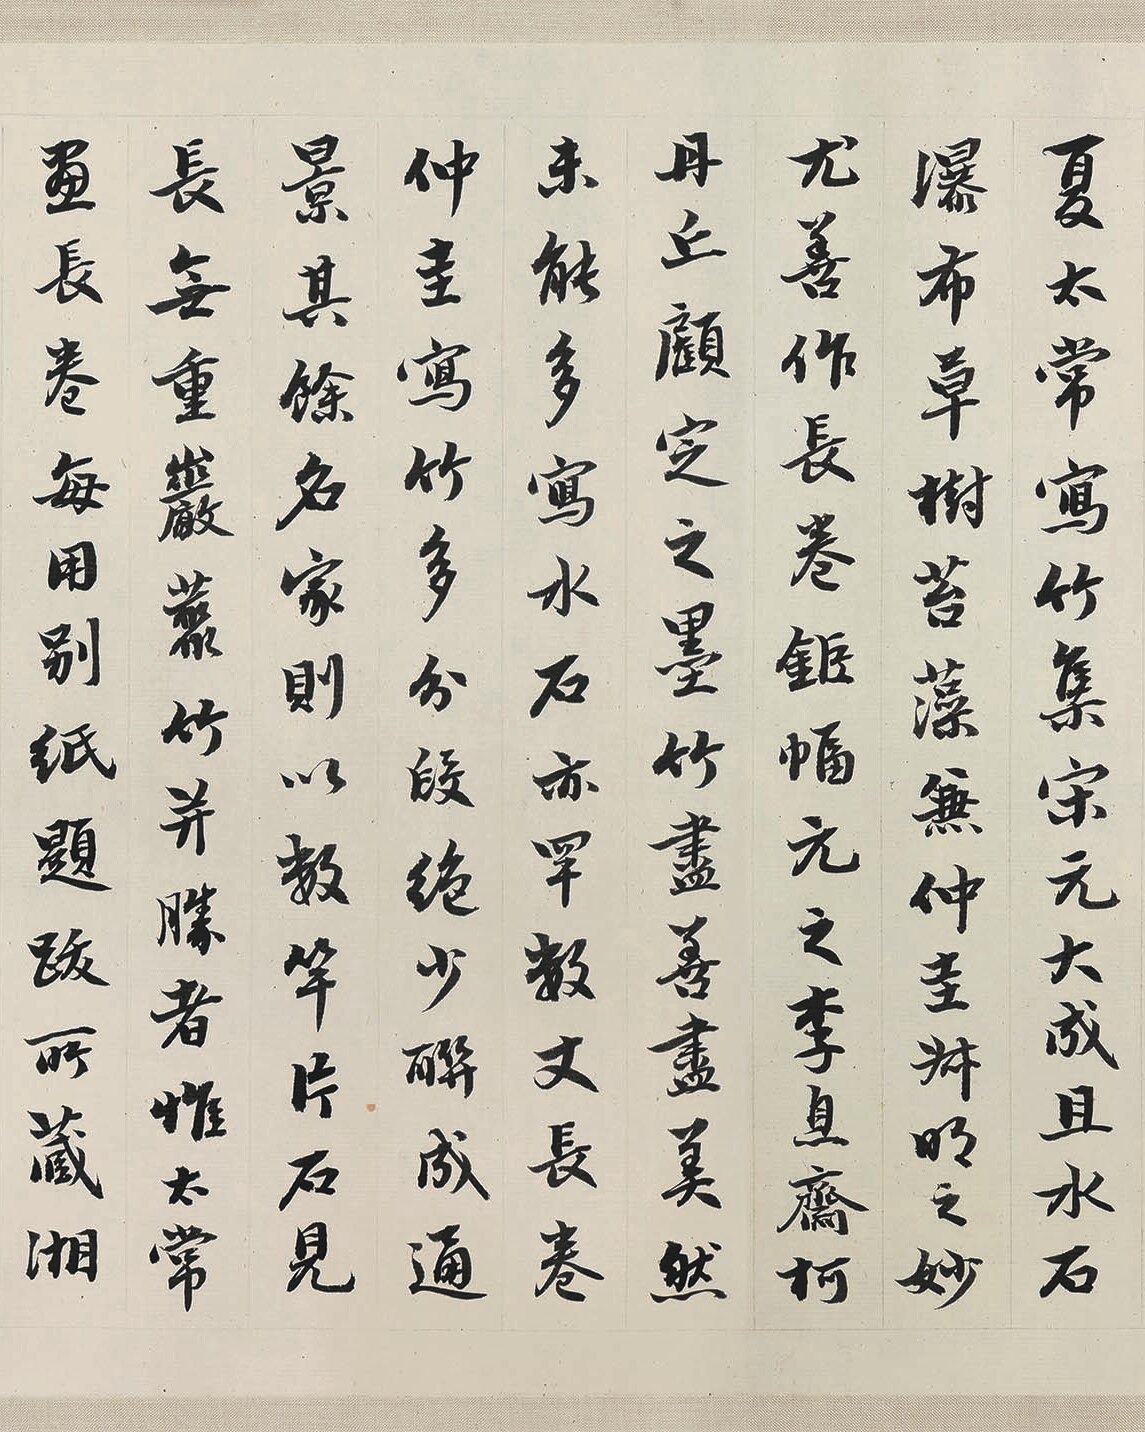 夏太常寫竹集宋元大成且水石
瀑布草樹苔藻無仲圭叔明之妙
尤善作長卷鉅幅元之李息齋柯
丹丘顧定之墨竹盡善盡美然
未能多寫水石亦罕數丈長卷
仲圭寫竹多分段絶少聯成通
景其餘名家則以數竿片石見
長無重巖叢竹并勝者惟太常
畫長卷每用别紙題跋所藏湘